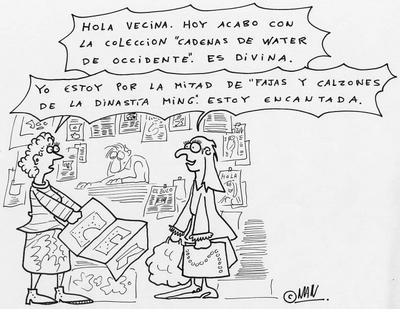 HOLA VECINA. HOY ACABO CON
LA COLECCION "CADENAS DE WATER
DE OCCIDENTE". ES DIVINA.
YO ESTOY POR LA MITAD DE "FAJAS Y CALZONES
DE LA DINASTIA MING". ESTOY ENCANTADA.
EL BUCO
HOLA
©NAN.